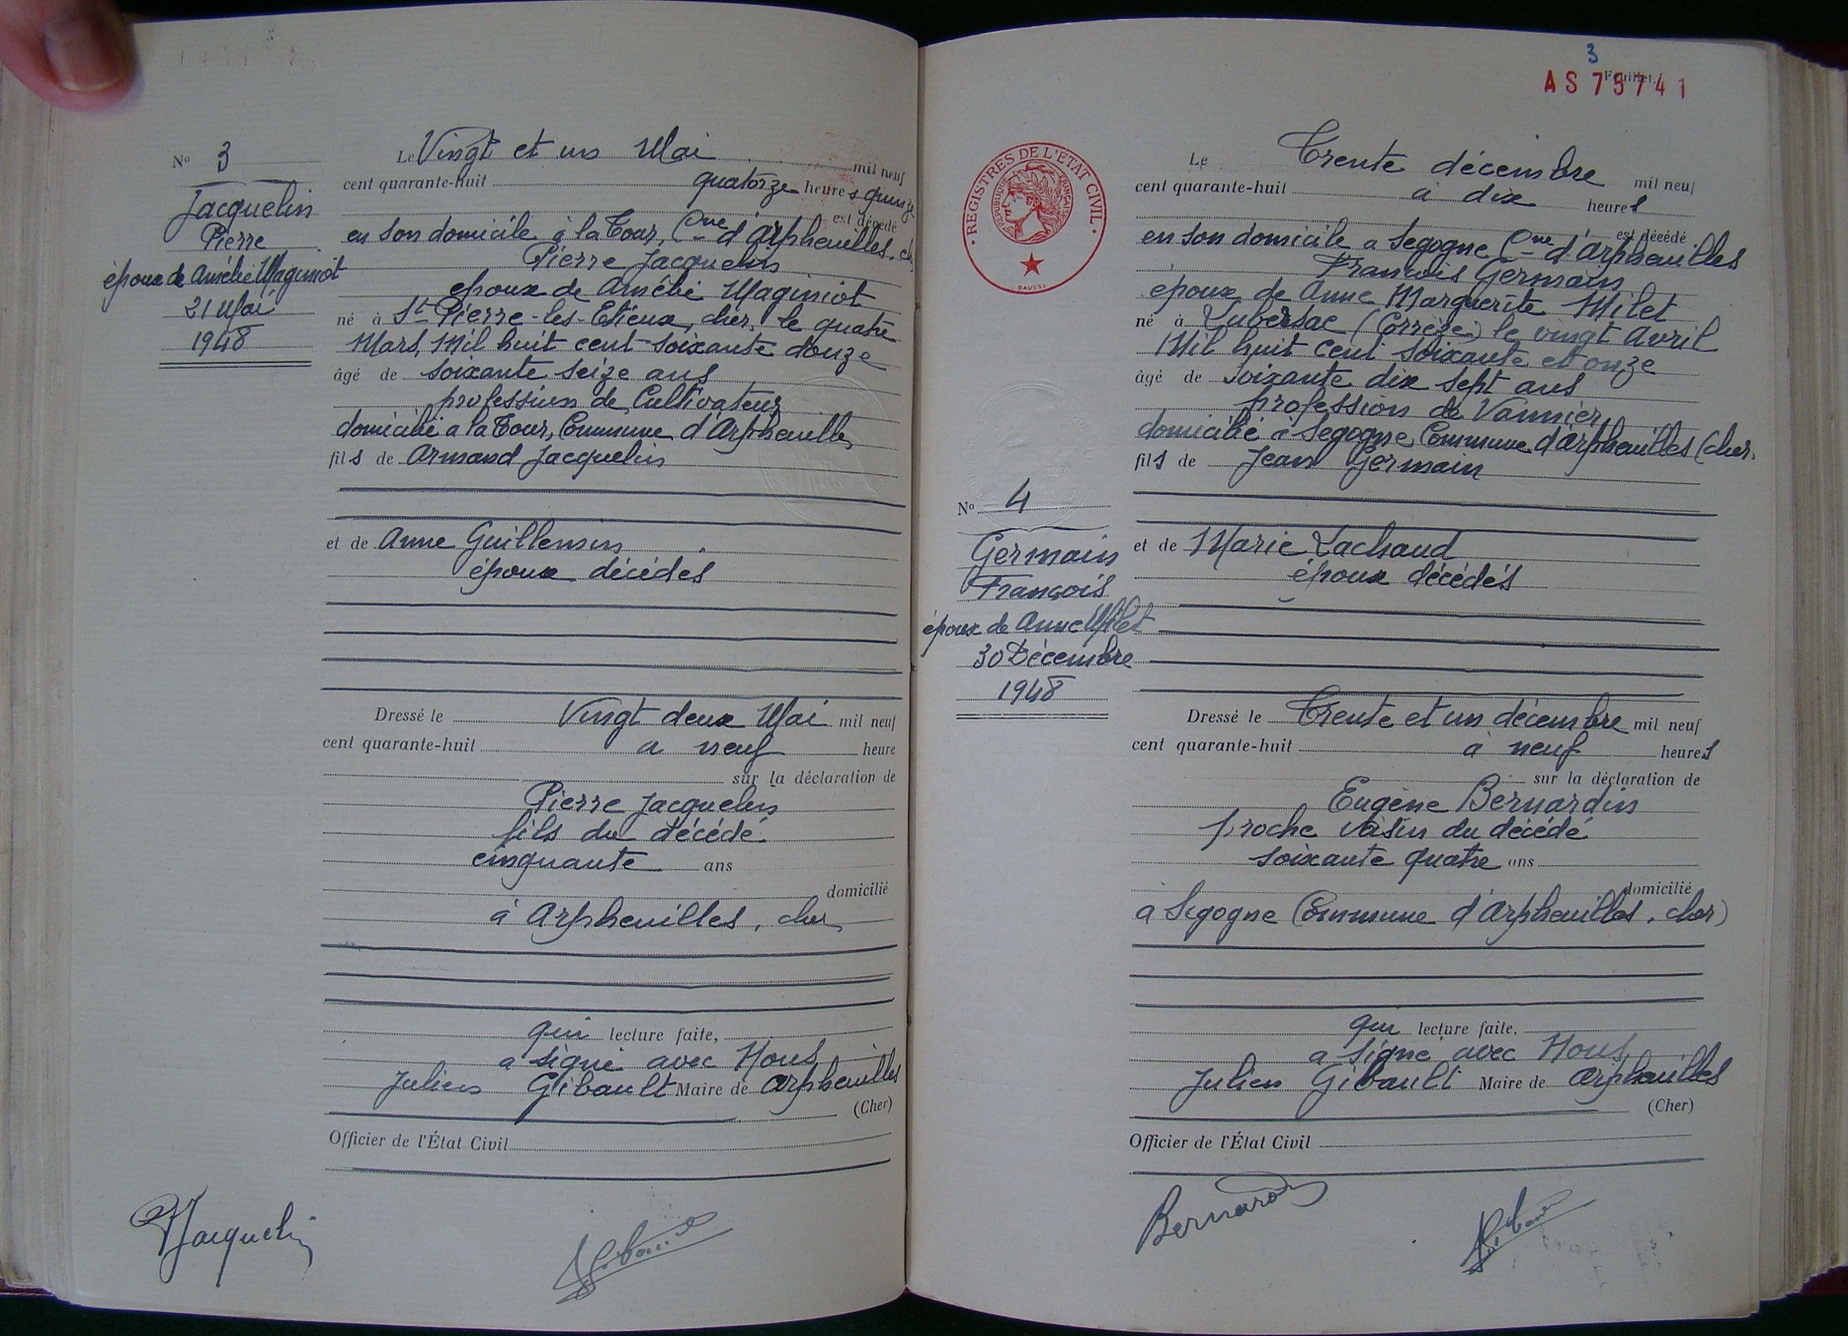 N° 3
Jacquelin
Pierre
époux de Amélie Maginiot
21 Mai
1948
Le Vingt et un Mai mil neuf
cent quarante-huit quatorze heures quinze
est décédé
en son domicile à la Tour, Cne d'Arpheuilles, ch,
Pierre Jacquelin
époux de Amélie Maginiot
né à St Pierre-les-Etieux, cher, le quatre
Mars, Mil huit cent soixante douze
âgé de soixante seize ans
profession de Cultivateur
domicilié a la Tour, Commune d'Arpheuilles
fils de Armand Jacquelin
et de Anne Guillemin
époux décédés
Dressé le Vingt deux Mai mil neuf
cent quarante-huit a neuf heure
sur la déclaration de
Pierre Jacquelin
fils du décédé
cinquante ans
domicilié
à Arpheuilles, cher
qui lecture faite,
a signé avec Nous
Julien Gibault Maire de Arpheuilles
(Cher)
Officier de l'État Civil
Jacquelin
3
Feuillet
AS 75741
REGISTRES DE L'ÉTAT CIVIL
RÉPUBLIQUE FRANÇAISE
DAUSSY
N° 4
Germain
François
époux de Anne Milet
30 Décembre
1948
Le Trente décembre mil neuf
cent quarante-huit à dix heures
est décédé
en son domicile a Segogne Cne d'Arpheuilles
François Germain
époux de Anne Marguerite Milet
né à Lubersac (Corrèze) le vingt Avril
Mil huit cent soixante et onze
âgé de soixante dix sept ans
profession de Vannier
domicilié à Segogne, Commune d'Arpheuilles (cher.
fils de Jean Germain
et de Marie Lachaud
époux décédés
Dressé le Trente et un décembre mil neuf
cent quarante-huit à neuf heures
sur la déclaration de
Eugène Bernardin
proche voisin du décédé
soixante quatre ans
domicilié
a Segogne (Commune d'Arpheuilles, cher)
qui lecture faite,
a signé avec Nous
Julien Gibault Maire de Arpheuilles
(Cher)
Officier de l'État Civil
Bernardin